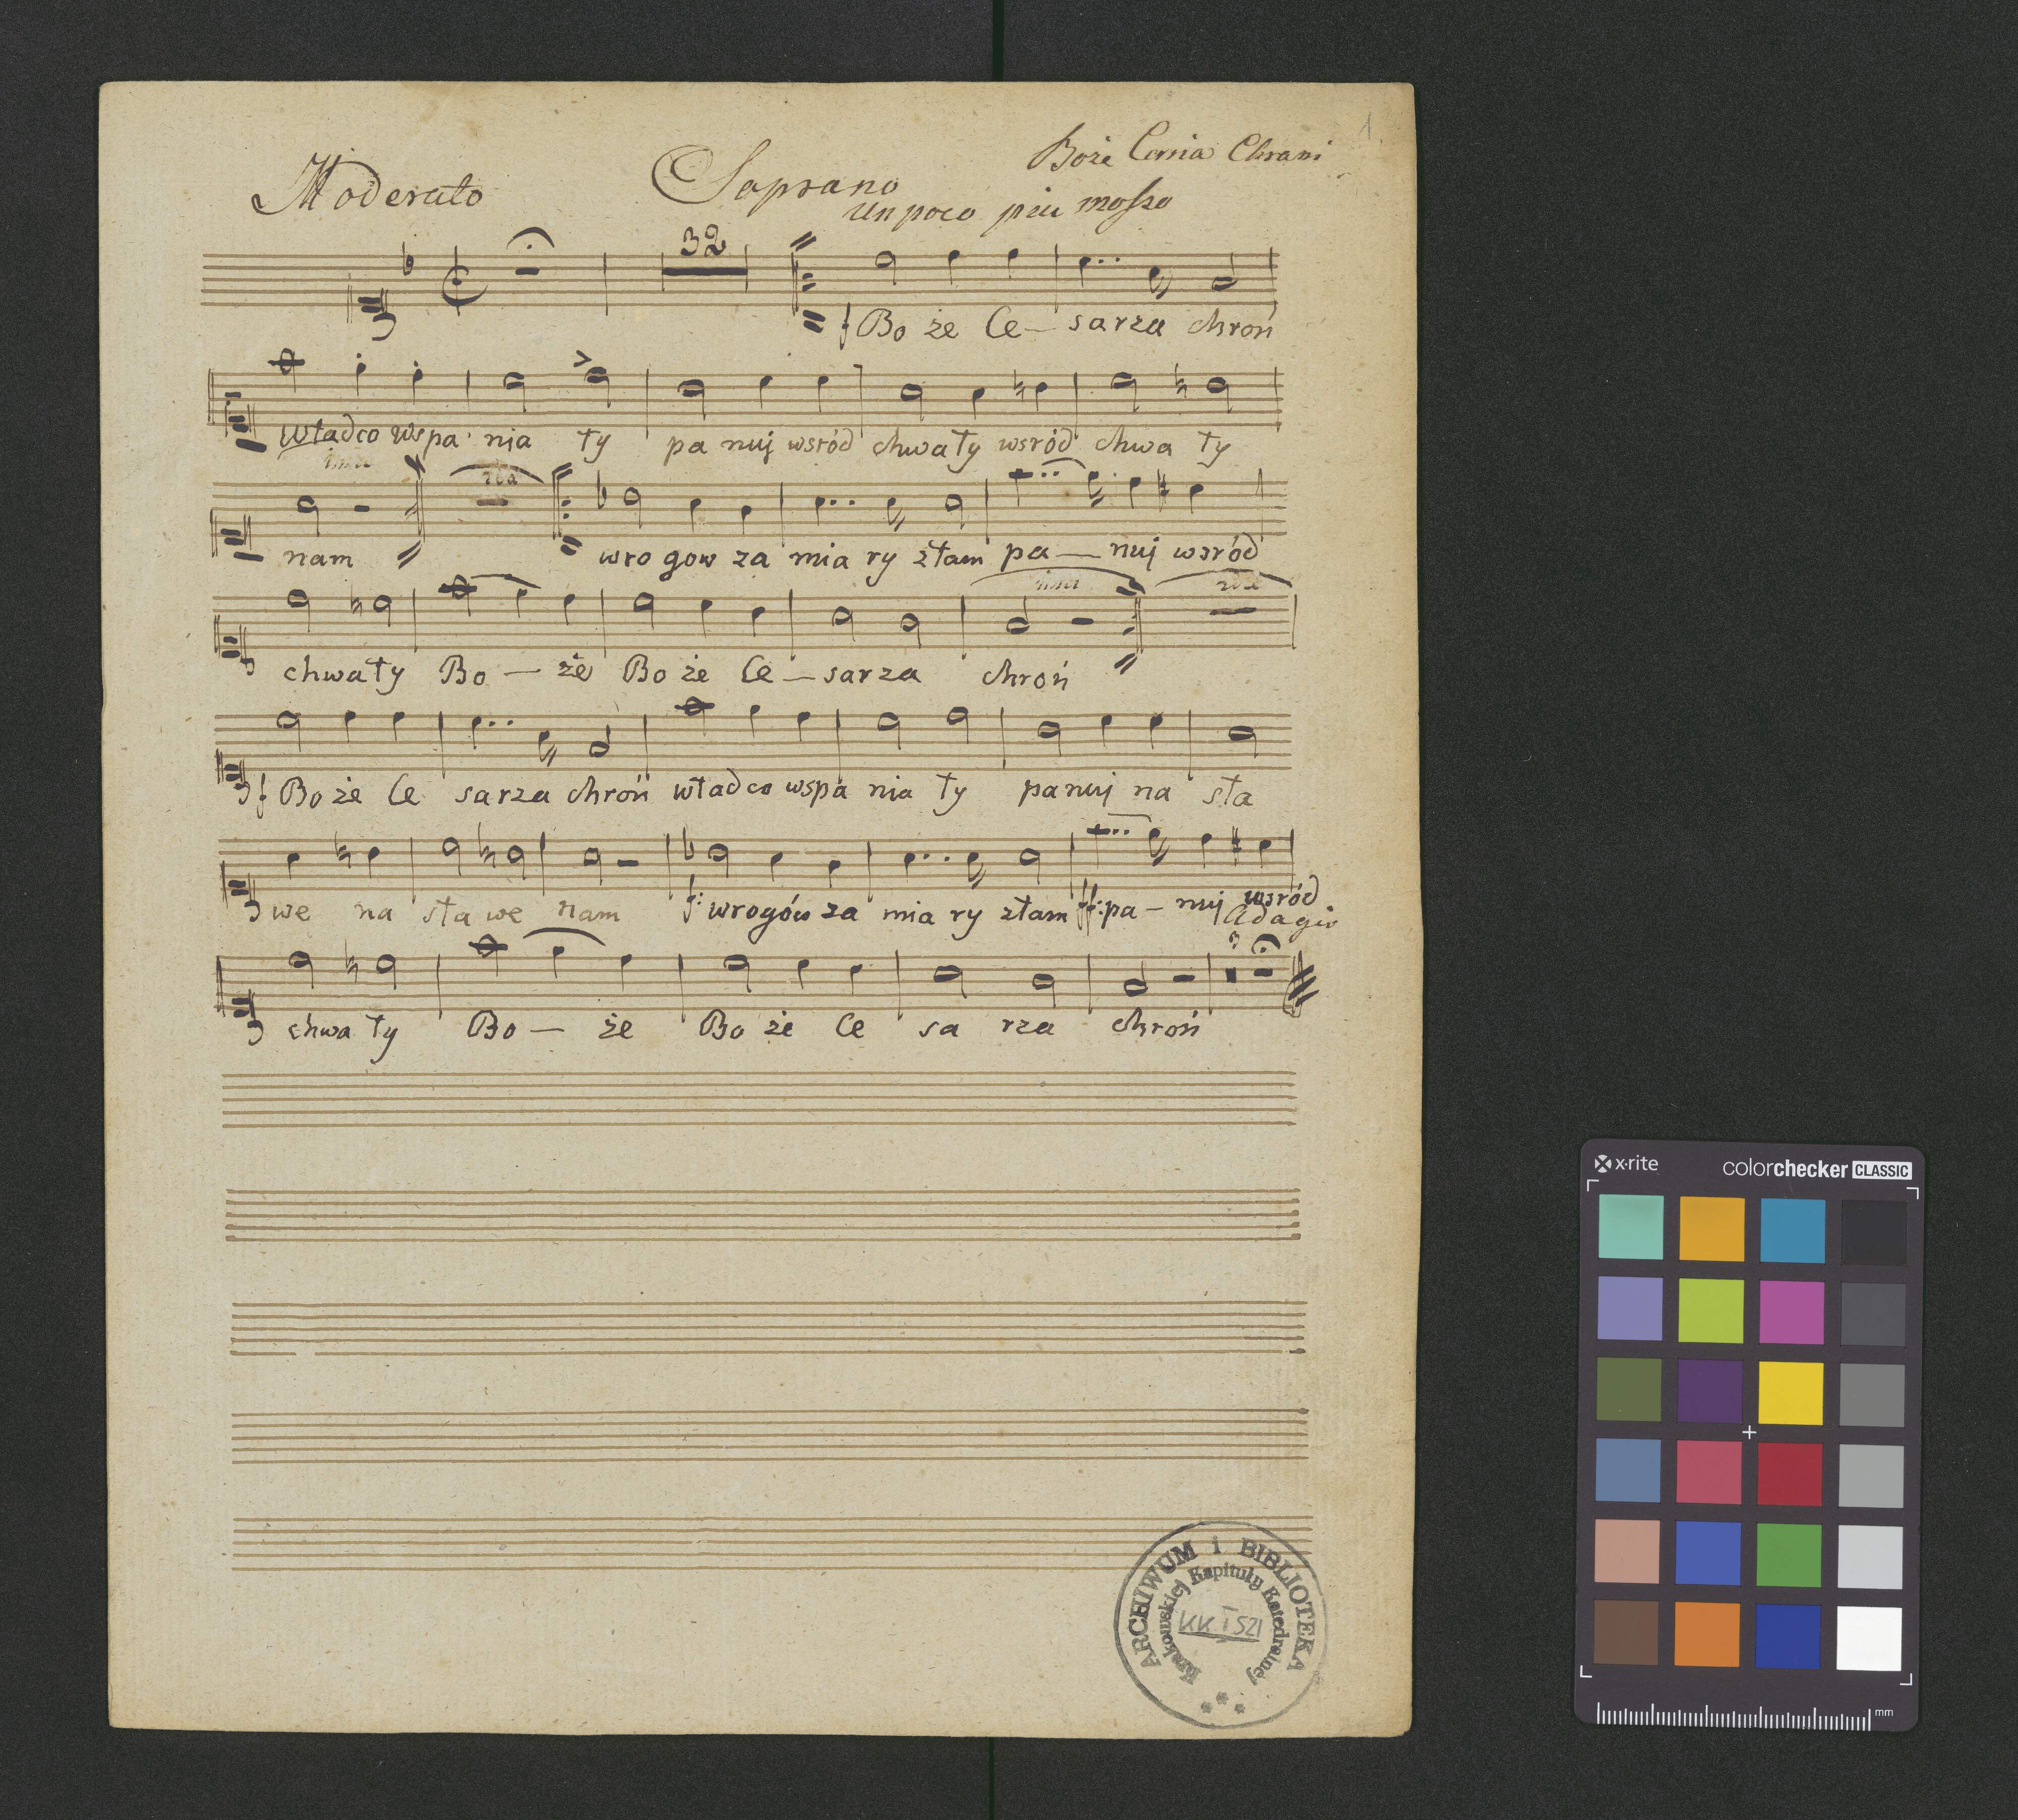 1
Boże Caria Chrani
Moderato
Soprano
Un poco piu mosso
32
f Bo że Ce — sarza chroń
władco wspa nia ły pa nuj wsród chwały wsród chwa ły
ima 2da
nam wro gow za mia ry złam pa — nuj wsród
ima 2da
chwały Bo — że Bo że Ce — sarza chroń
f Bo że Ce sarza chroń władco wspa nia ły panuj na sła
we na sła we nam f: wrogów za mia ry złam ff: pa — nuj wsród
Adagio
chwa ły Bo — że Bo że Ce sa rza chroń
ARCHIWUM i BIBLIOTEKA
Krakowskiej Kapituły Katedralnej
KK I 521
x-rite colorchecker CLASSIC
mm